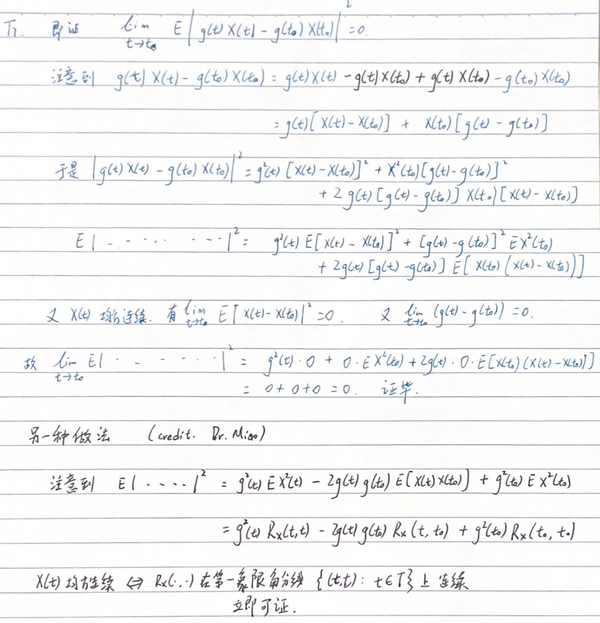 下. 即证 lim_{t→t₀} E|g(t)X(t) - g(t₀)X(t₀)|² = 0.
注意到 g(t)X(t) - g(t₀)X(t₀) = g(t)X(t) - g(t)X(t₀) + g(t)X(t₀) - g(t₀)X(t₀)
= g(t)[X(t) - X(t₀)] + X(t₀)[g(t) - g(t₀)]
于是 |g(t)X(t) - g(t₀)X(t₀)|² = g²(t)[X(t)-X(t₀)]² + X²(t₀)[g(t)-g(t₀)]²
+ 2g(t)[g(t)-g(t₀)]X(t₀)[X(t)-X(t₀)]
E|- - - - - - - -|² = g²(t)E[X(t) - X(t₀)]² + [g(t)-g(t₀)]²EX²(t₀)
+ 2g(t)[g(t)-g(t₀)]E[X(t₀)(X(t)-X(t₀))]
又 X(t) 均方连续. 有 lim_{t→t₀} E[X(t)-X(t₀)|² = 0. 又 lim_{t→t₀} (g(t)-g(t₀)) = 0.
故 lim_{t→t₀} E|- - - - - - -|² = g²(t)·0 + 0·EX²(t₀) + 2g(t)·0·E[X(t₀)(X(t)-X(t₀))]
= 0+0+0 = 0. 证毕.
另一种做法 (credit. Dr. Miao)
注意到 E|- - - -|² = g²(t)EX²(t) - 2g(t)g(t₀)E[X(t)X(t₀)] + g²(t₀)EX²(t₀)
= g²(t)Rx(t,t) - 2g(t)g(t₀)Rx(t,t₀) + g²(t₀)Rx(t₀,t₀)
X(t) 均方连续 ⇔ Rx(·,·) 在第一象限角分线 {(t,t): t∈T} 上连续
立即可证.